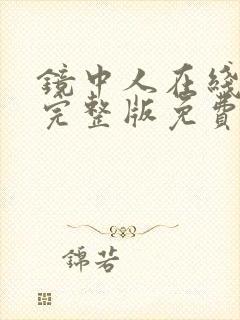 鏡中人在綫
完整版免費
錦若